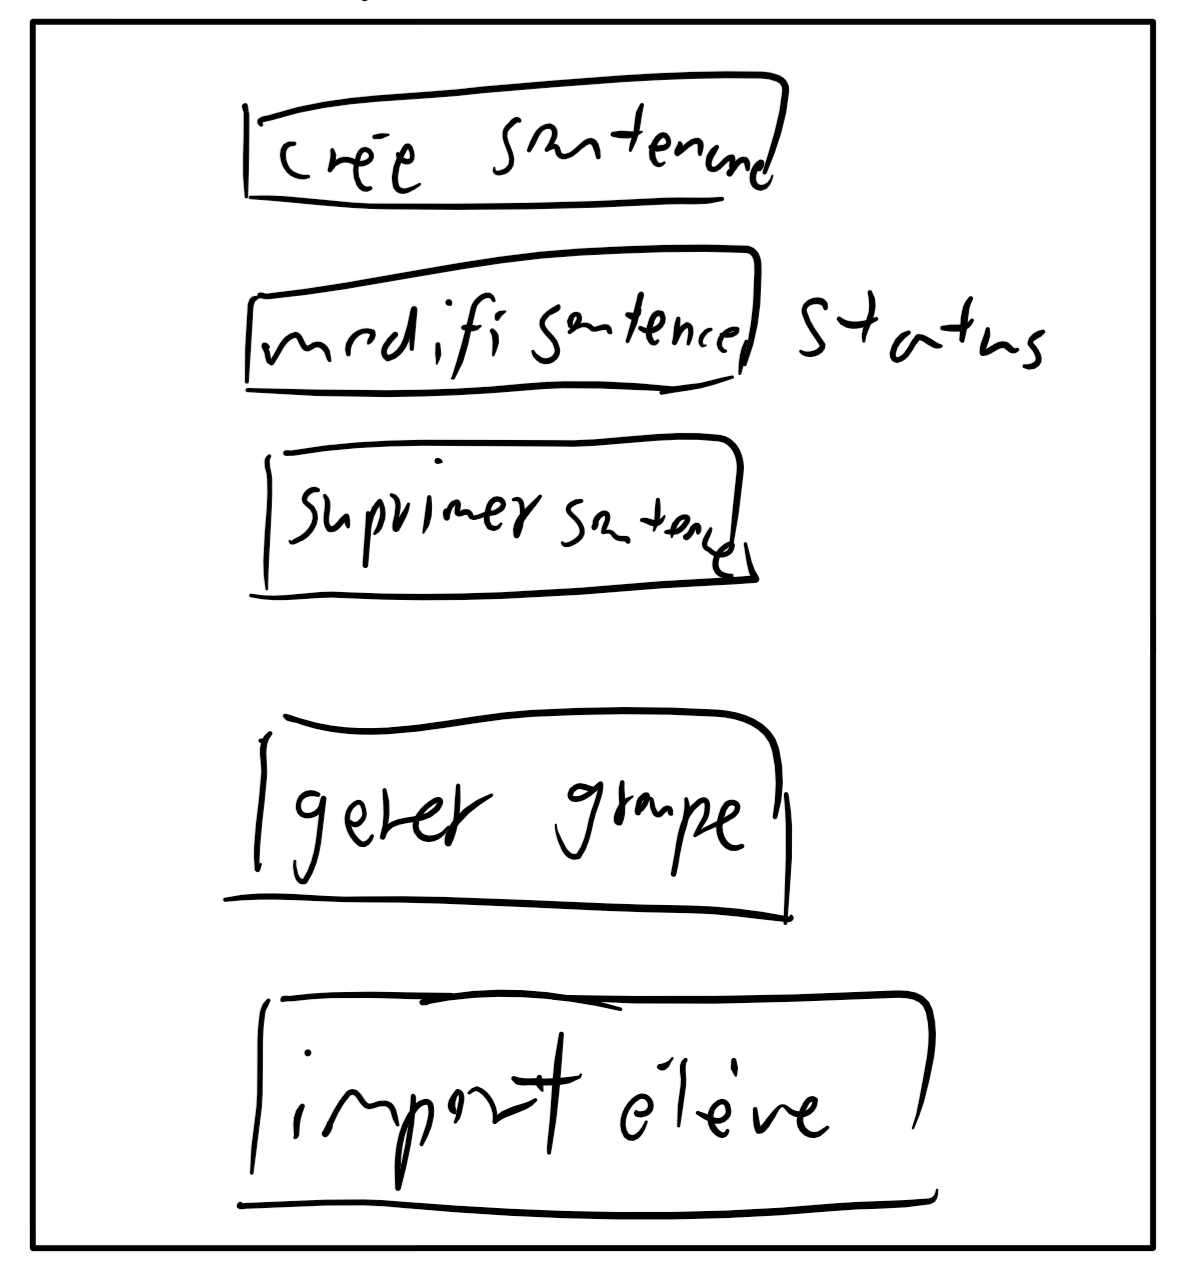 crée sentence
modifi sentence status
suprimer sentence
gerer groupe
import élève